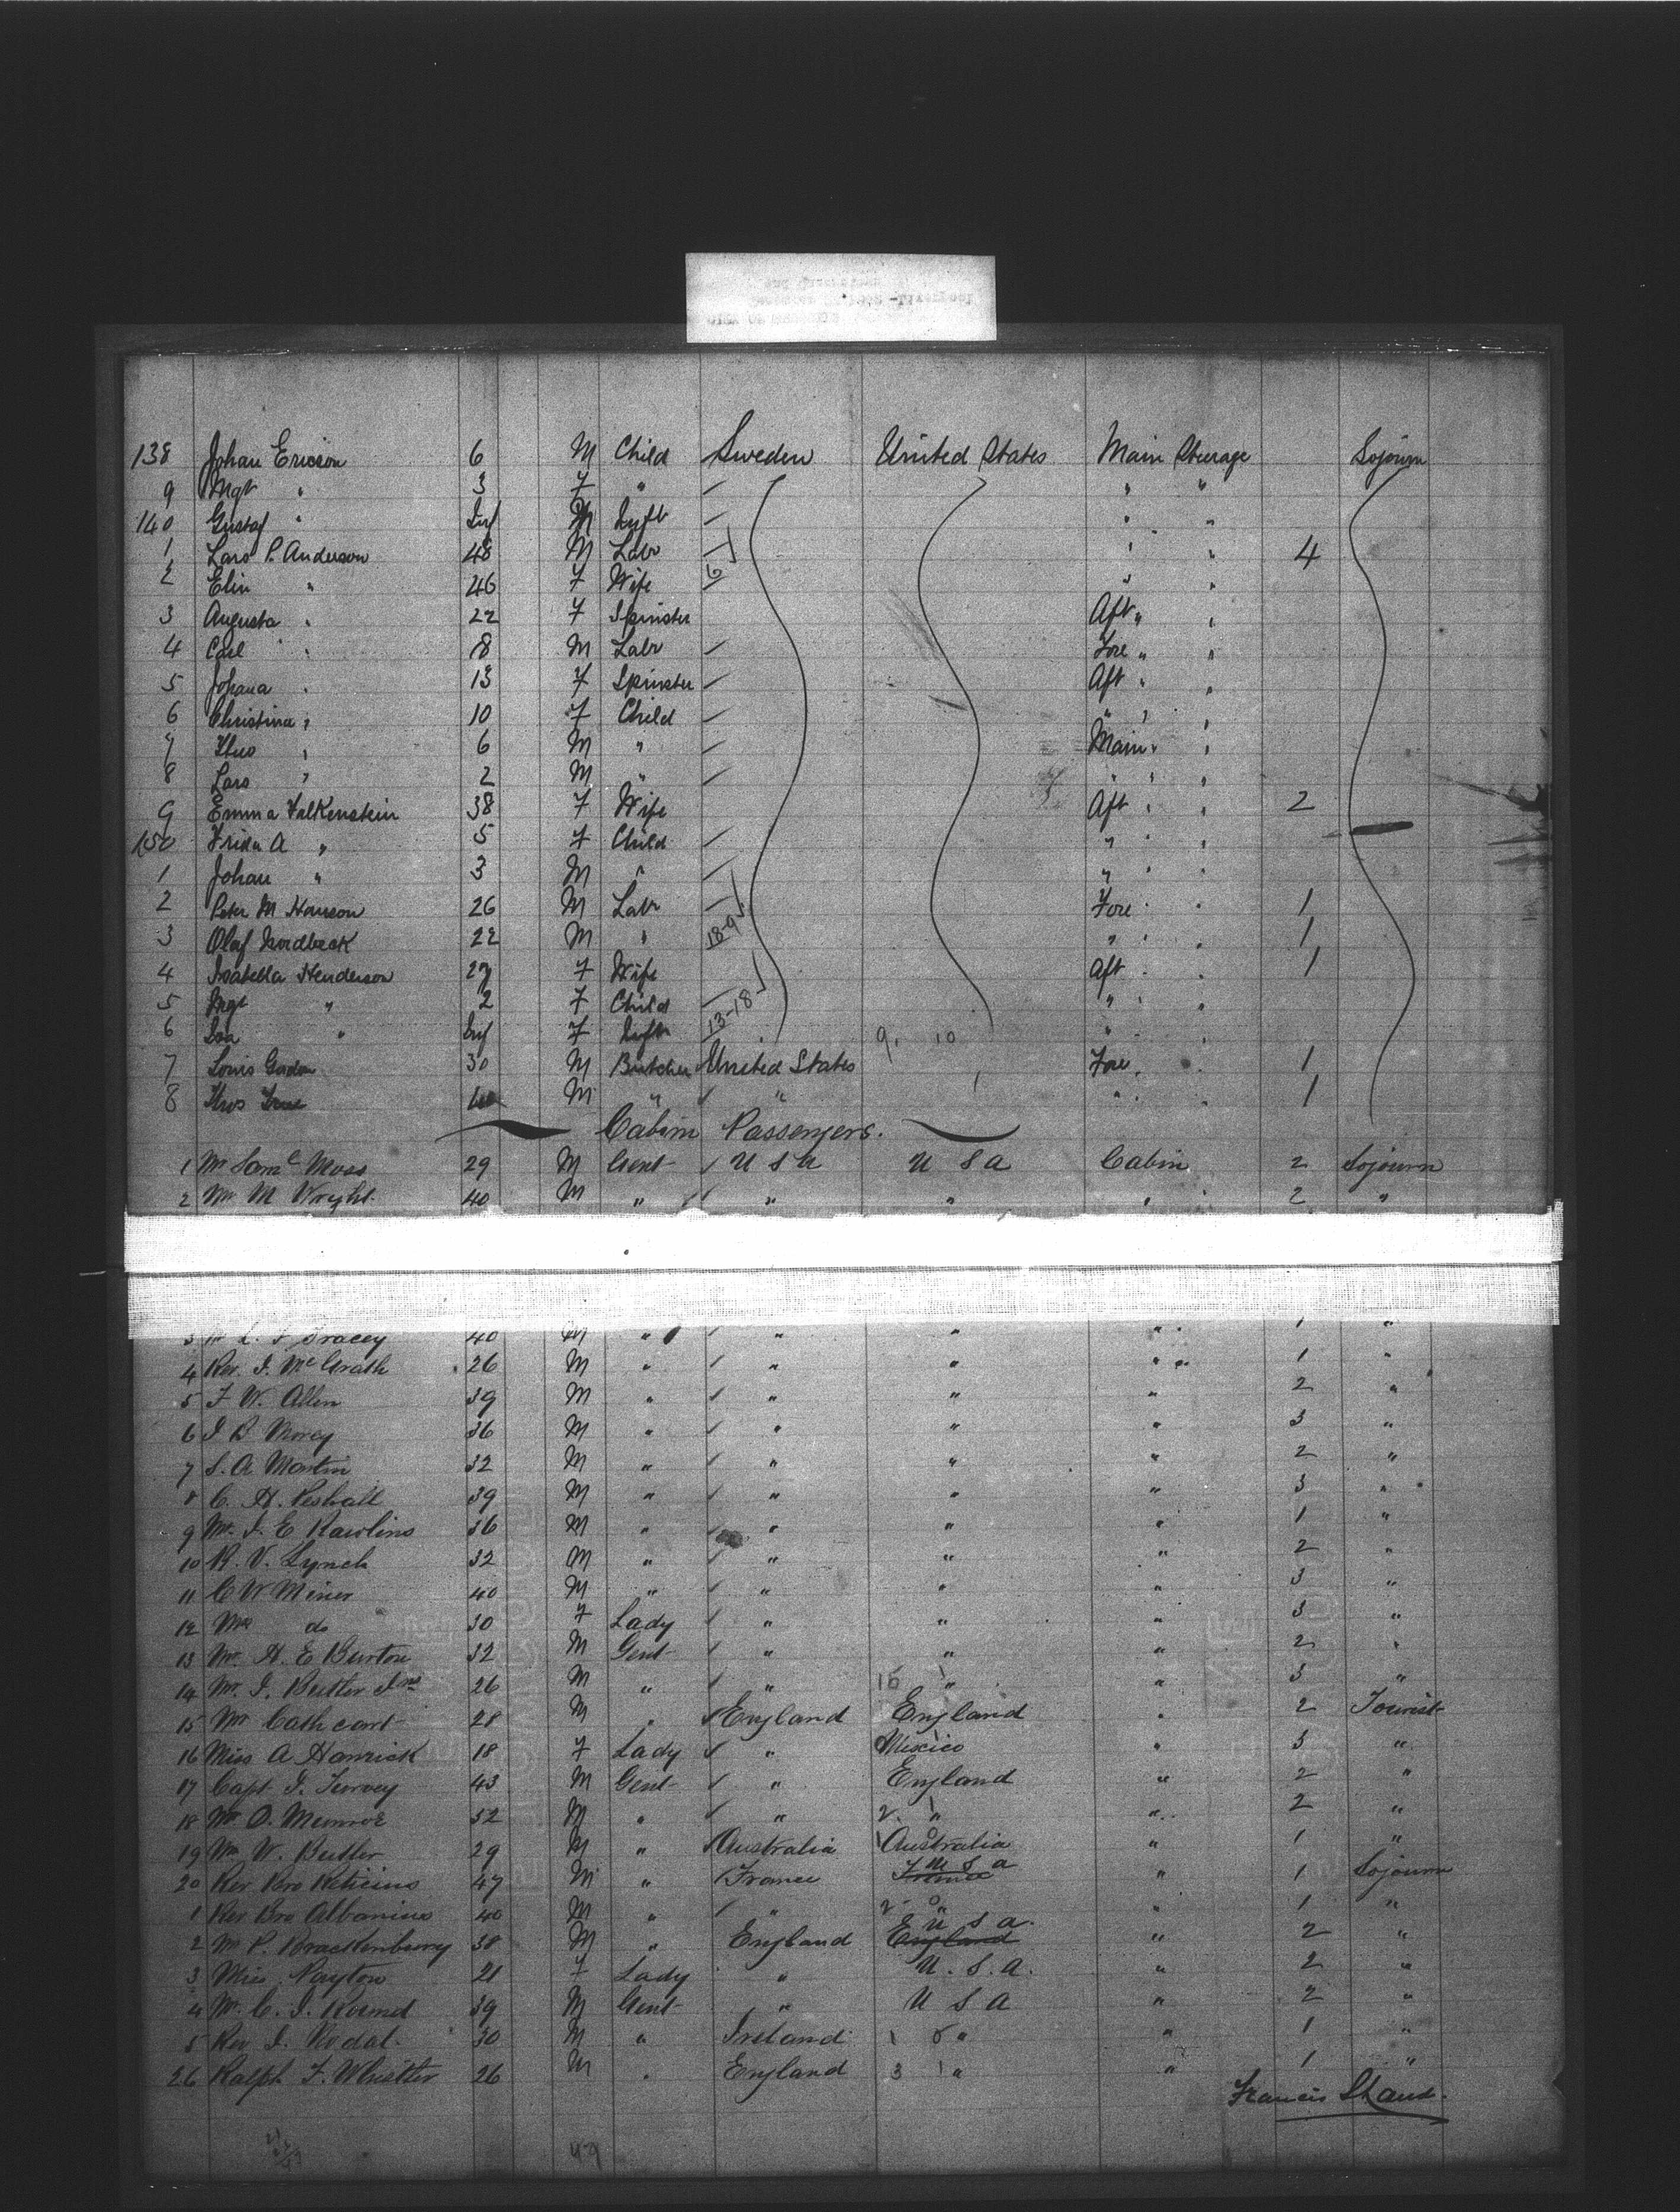 138 Johan Ericson 6 M Child Sweden United States Main Steerage Sojourn
9 Mgt " 3 F " " "
140 Gustaf " Inf M Inft " "
1 Lars P. Anderson 48 M Labr " " 4
2 Elin " 46 F Wife " "
3 Augusta " 22 F Spinster Aft " "
4 Carl " 18 M Labr Fore " "
5 Johana " 13 F Spinster Aft " "
6 Christina " 10 F Child " " "
7 Theo " 6 M " Main " "
8 Lars " 2 M " " " "
9 Emma Falkenstein 38 F Wife Aft " " 2
150 Frida A " 5 F Child " "
1 Johan " 3 M " " " "
2 Peter M Hanson 26 M Labr Fore " " 1
3 Olaf Nordback 22 M " 18-9 " " " 1
4 Isabella Henderson 27 F Wife Aft " " 1
5 Mgt " 2 F Child " " "
6 Isa " Inf F Inft 13-18 9. 10 " "
7 Louis Gordon 30 M Butcher United States Fore " 1
8 Thos 40 M " " " " 1
Cabin Passengers.
1 Mr Saml Moss 29 M Gent U S A U S A Cabin 2 Sojourn
2 Mr M Wright. 40 M " " " " 2 "
3 Mr L. F Tracey 40 M " " " " 1 "
4 Rev. J. McGrath 26 M " " " " 1 "
5 F W. Allen 39 M " " " " 2 "
6 J D Morey 36 M " " " " 3 "
7 S. A Martin 32 M " " " " 2 "
8 C. H. Peshall 39 M " " " " 3 "
9 Mr. J. E Rawlins 36 M " " " " 1 "
10 R. V. Lynch 32 M " " " " 2 "
11 C W Miner 40 M " " " " 3 "
12 Mrs do 30 F Lady " " " 3 "
13 Mr. H. E Burton 32 M Gent " " " 2 "
14 Mr. J. Butler Jnr 26 M " " 15 " " 3 "
15 Mr Cathcart 28 M " England England " 2 Tourist
16 Miss A Hanrick 18 F Lady " Mexico " 3 "
17 Capt J. Turvey 43 M Gent " England " 2 "
18 Mr O. Munroe 32 M " " 2. " " 2 "
19 Mr W. Butler 29 M " Australia Australia " 1 "
20 Rev Bro Reticius 47 M " France U S A France " 1 Sojourn
1 Rev Bro Albanius 40 M " " 2 " " 1 "
2 Mr P. Brackenbury 38 M " England U S a. England " 2 "
3 Miss Payton 21 F Lady " U. S. A. " 2 "
4 Mr. C. J. 39 M Gent " U S A " 2 "
5 Rev J. 30 M " Ireland " " 1 "
26 Ralph F. Whistler 26 M " England 3 1 " " 1 "
Francis